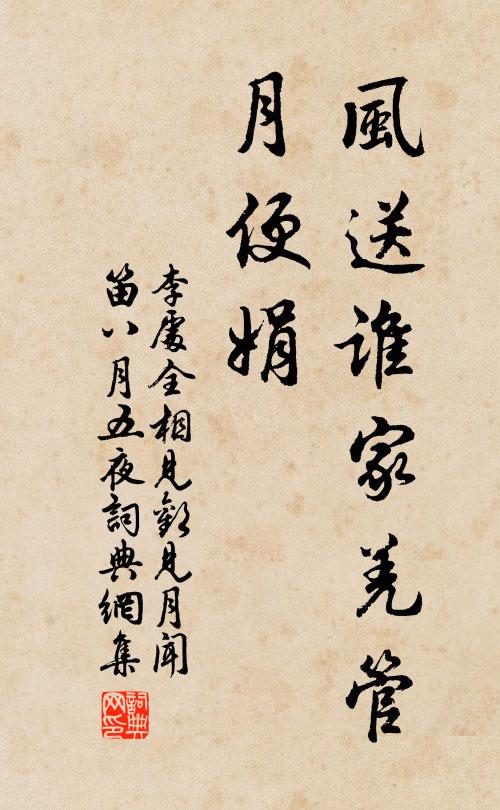 風送誰家羌管
月便娟
李處全相見歡見月聞
笛八月五夜詞典網集
詞典
网印